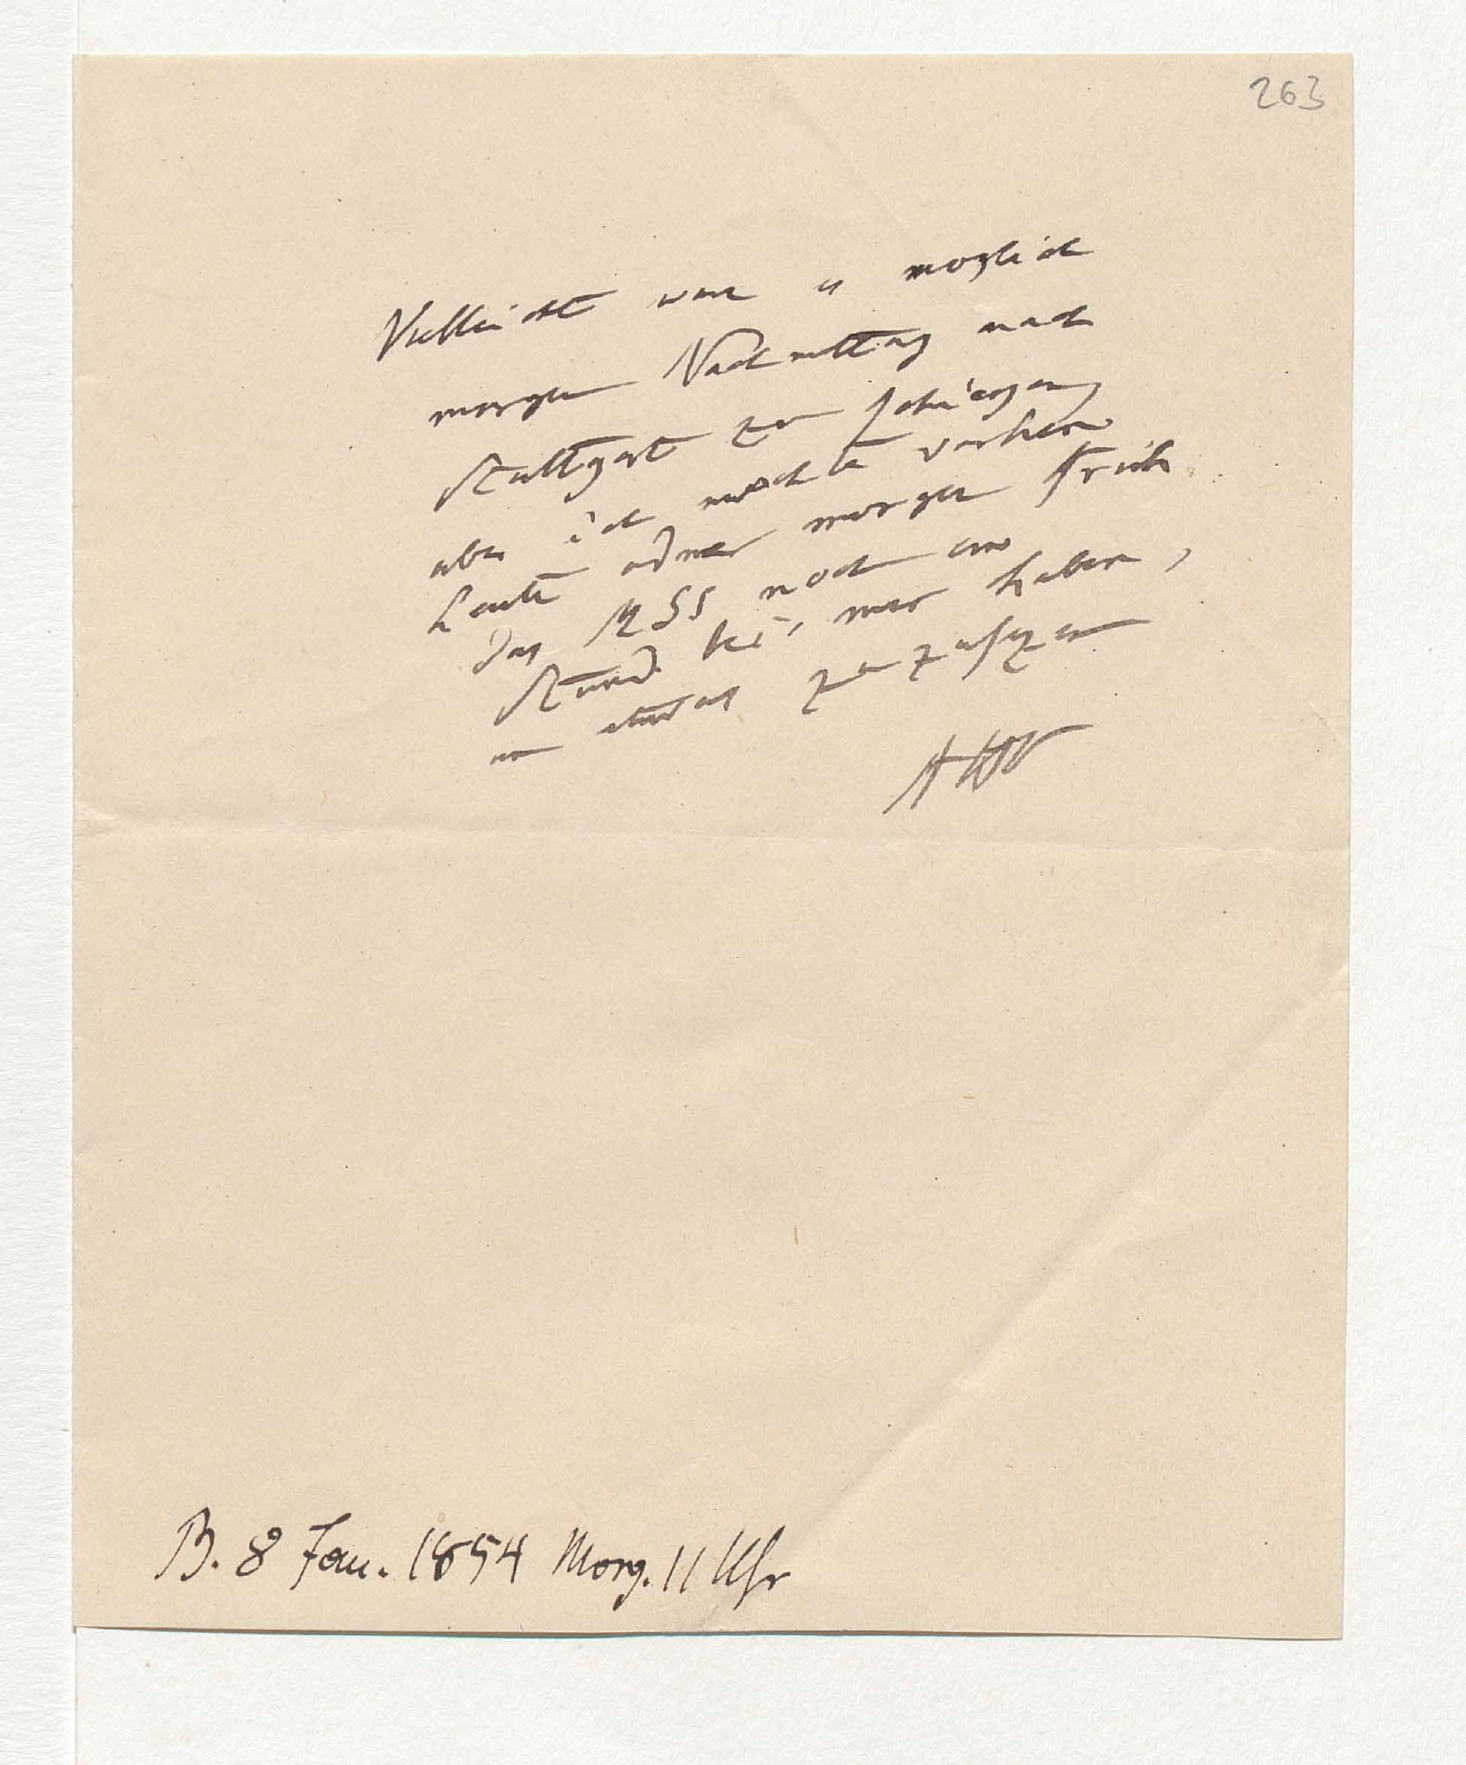 263
Vielleicht wäre es möglich
morgen Nachmittag nach
Stuttgart zu schicken
aber ich möchte vorher
heute oder morgen früh
das MSS noch eine
Stunde bei mir haben,
um etwas zuzusezen
AHt
B. 8 Jan. 1854 Morg. 11 Uhr